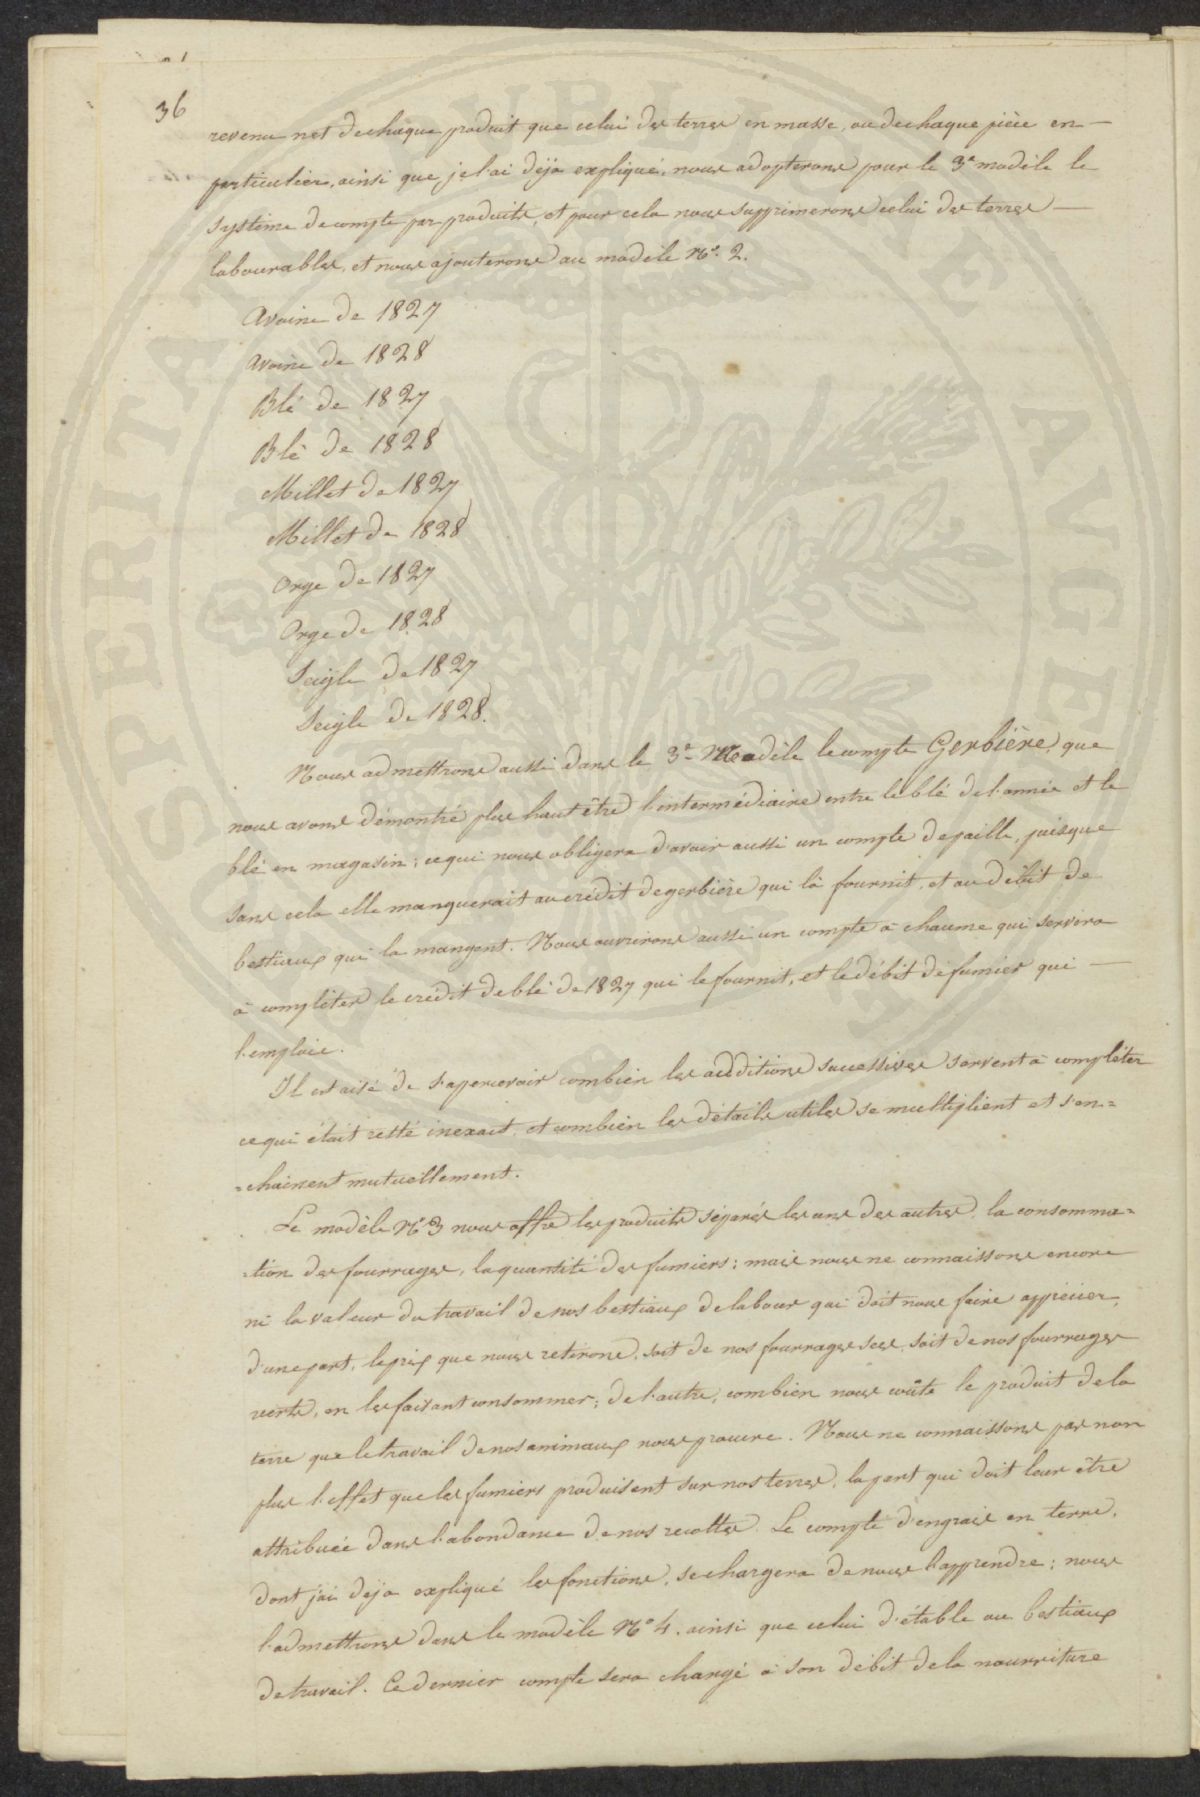 36
revenu net de chaque produit que celui des terres en masse, ou de chaque pièce en —
particulier, ainsi que je l'ai déja expliqué, nous adopterons pour le 3e modèle le
système de compte par produits, et pour cela nous supprimerons celui des terres —
labourables, et nous ajouterons au modèle No. 2.
Avoine de 1827
Avoine de 1828
Blé de 1827
Blé de 1828
Millet de 1827
Millet de 1828
Orge de 1827
Orge de 1828
Seigle de 1827
Seigle de 1828.
Nous admettrons aussi dans le 3e Modèle le compte Gerbière, que
nous avons démontré plus haut être l'intermédiaire entre le blé de l'année et le
blé en magasin; ce qui nous obligera d'avoir aussi un compte de paille, puisque
sans cela elle manquerait au crédit de gerbière qui là fournit, et au débit de
bestiaux qui la mangent. Nous ouvrirons aussi un compte à chaume qui servira
à compléter le crédit de blé de 1827 qui le fournit, et le débit de fumier qui —
l'emploie.
Il est aisé de s'apercevoir combien les additions successives servent à compléter
ce qui était resté inexact, et combien les détails utiles se multiplient et s'en=
=chainent mutuellement.
Le modèle No 3 nous offre les produits séparés les uns des autres, la consomma=
=tion des fourrages, la quantité des fumiers; mais nous ne connaissons encore
ni la valeur du travail de nos bestiaux de labour qui doit nous faire apprécier,
d'une part, le prix que nous retirons, soit de nos fourrages secs, soit de nos fourrages
verts, en les faisant consommer; de l'autre, combien nous coûte le produit de la
terre que le travail de nos animaux nous procure. Nous ne connaissons pas non
plus l'effet que les fumiers produisent sur nos terres, la part qui doit leur être
attribuée dans l'abondance de nos recoltes. Le compte d'engrais en terre,
dont j'ai déja expliqué les fonctions, se chargera de nous l'apprendre; nous
l'admettrons dans le modèle No 4. ainsi que celui d'étable ou bestiaux
de travail. Ce dernier compte sera chargé à son débit de la nourriture